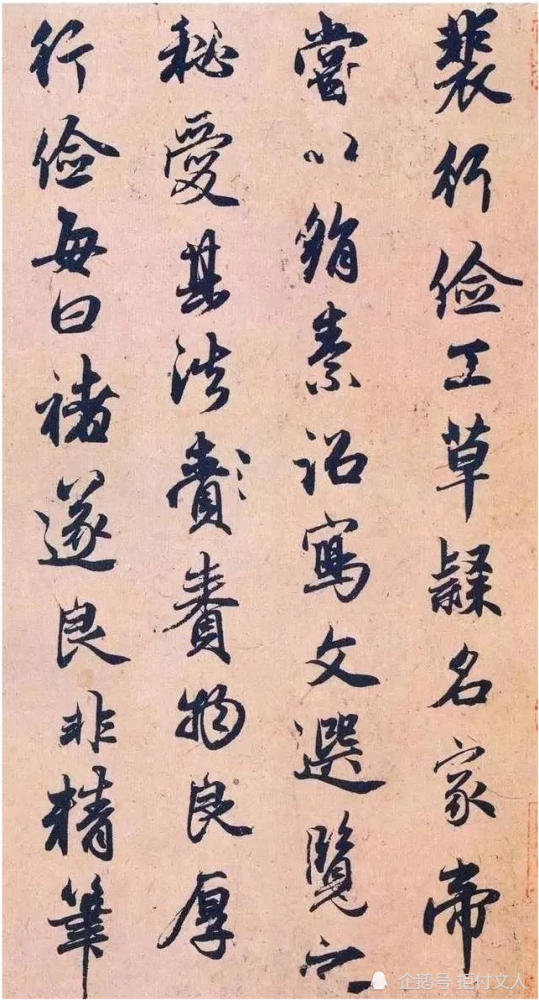 裴行儉工草隸名家帝
嘗以絹素詔寫文選覽之
秘愛其法賚賚物良厚
行儉每曰褚遂良非精筆
企鹅号 拒付文人